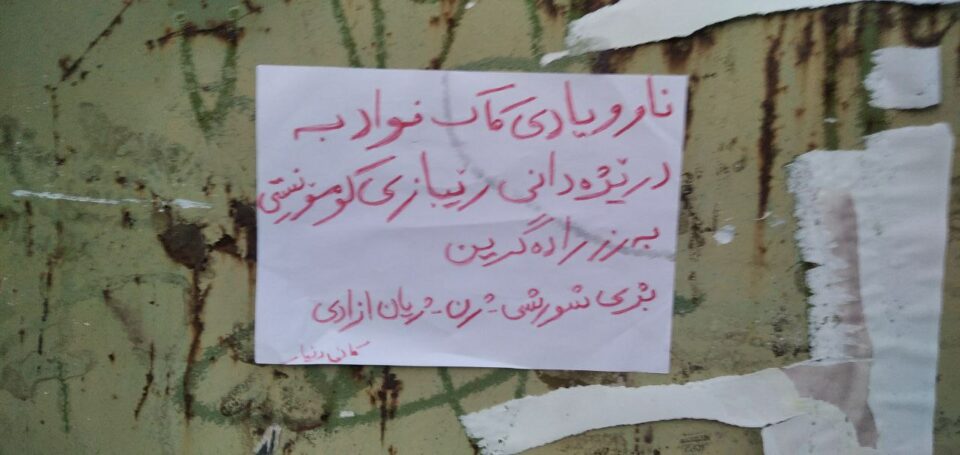 ناو و یادی کاک فواد به
درێژەدانی رێبازی کومونیستی
بەرز رادەگرین
بژی شورشی ژن_ژیان ازادی